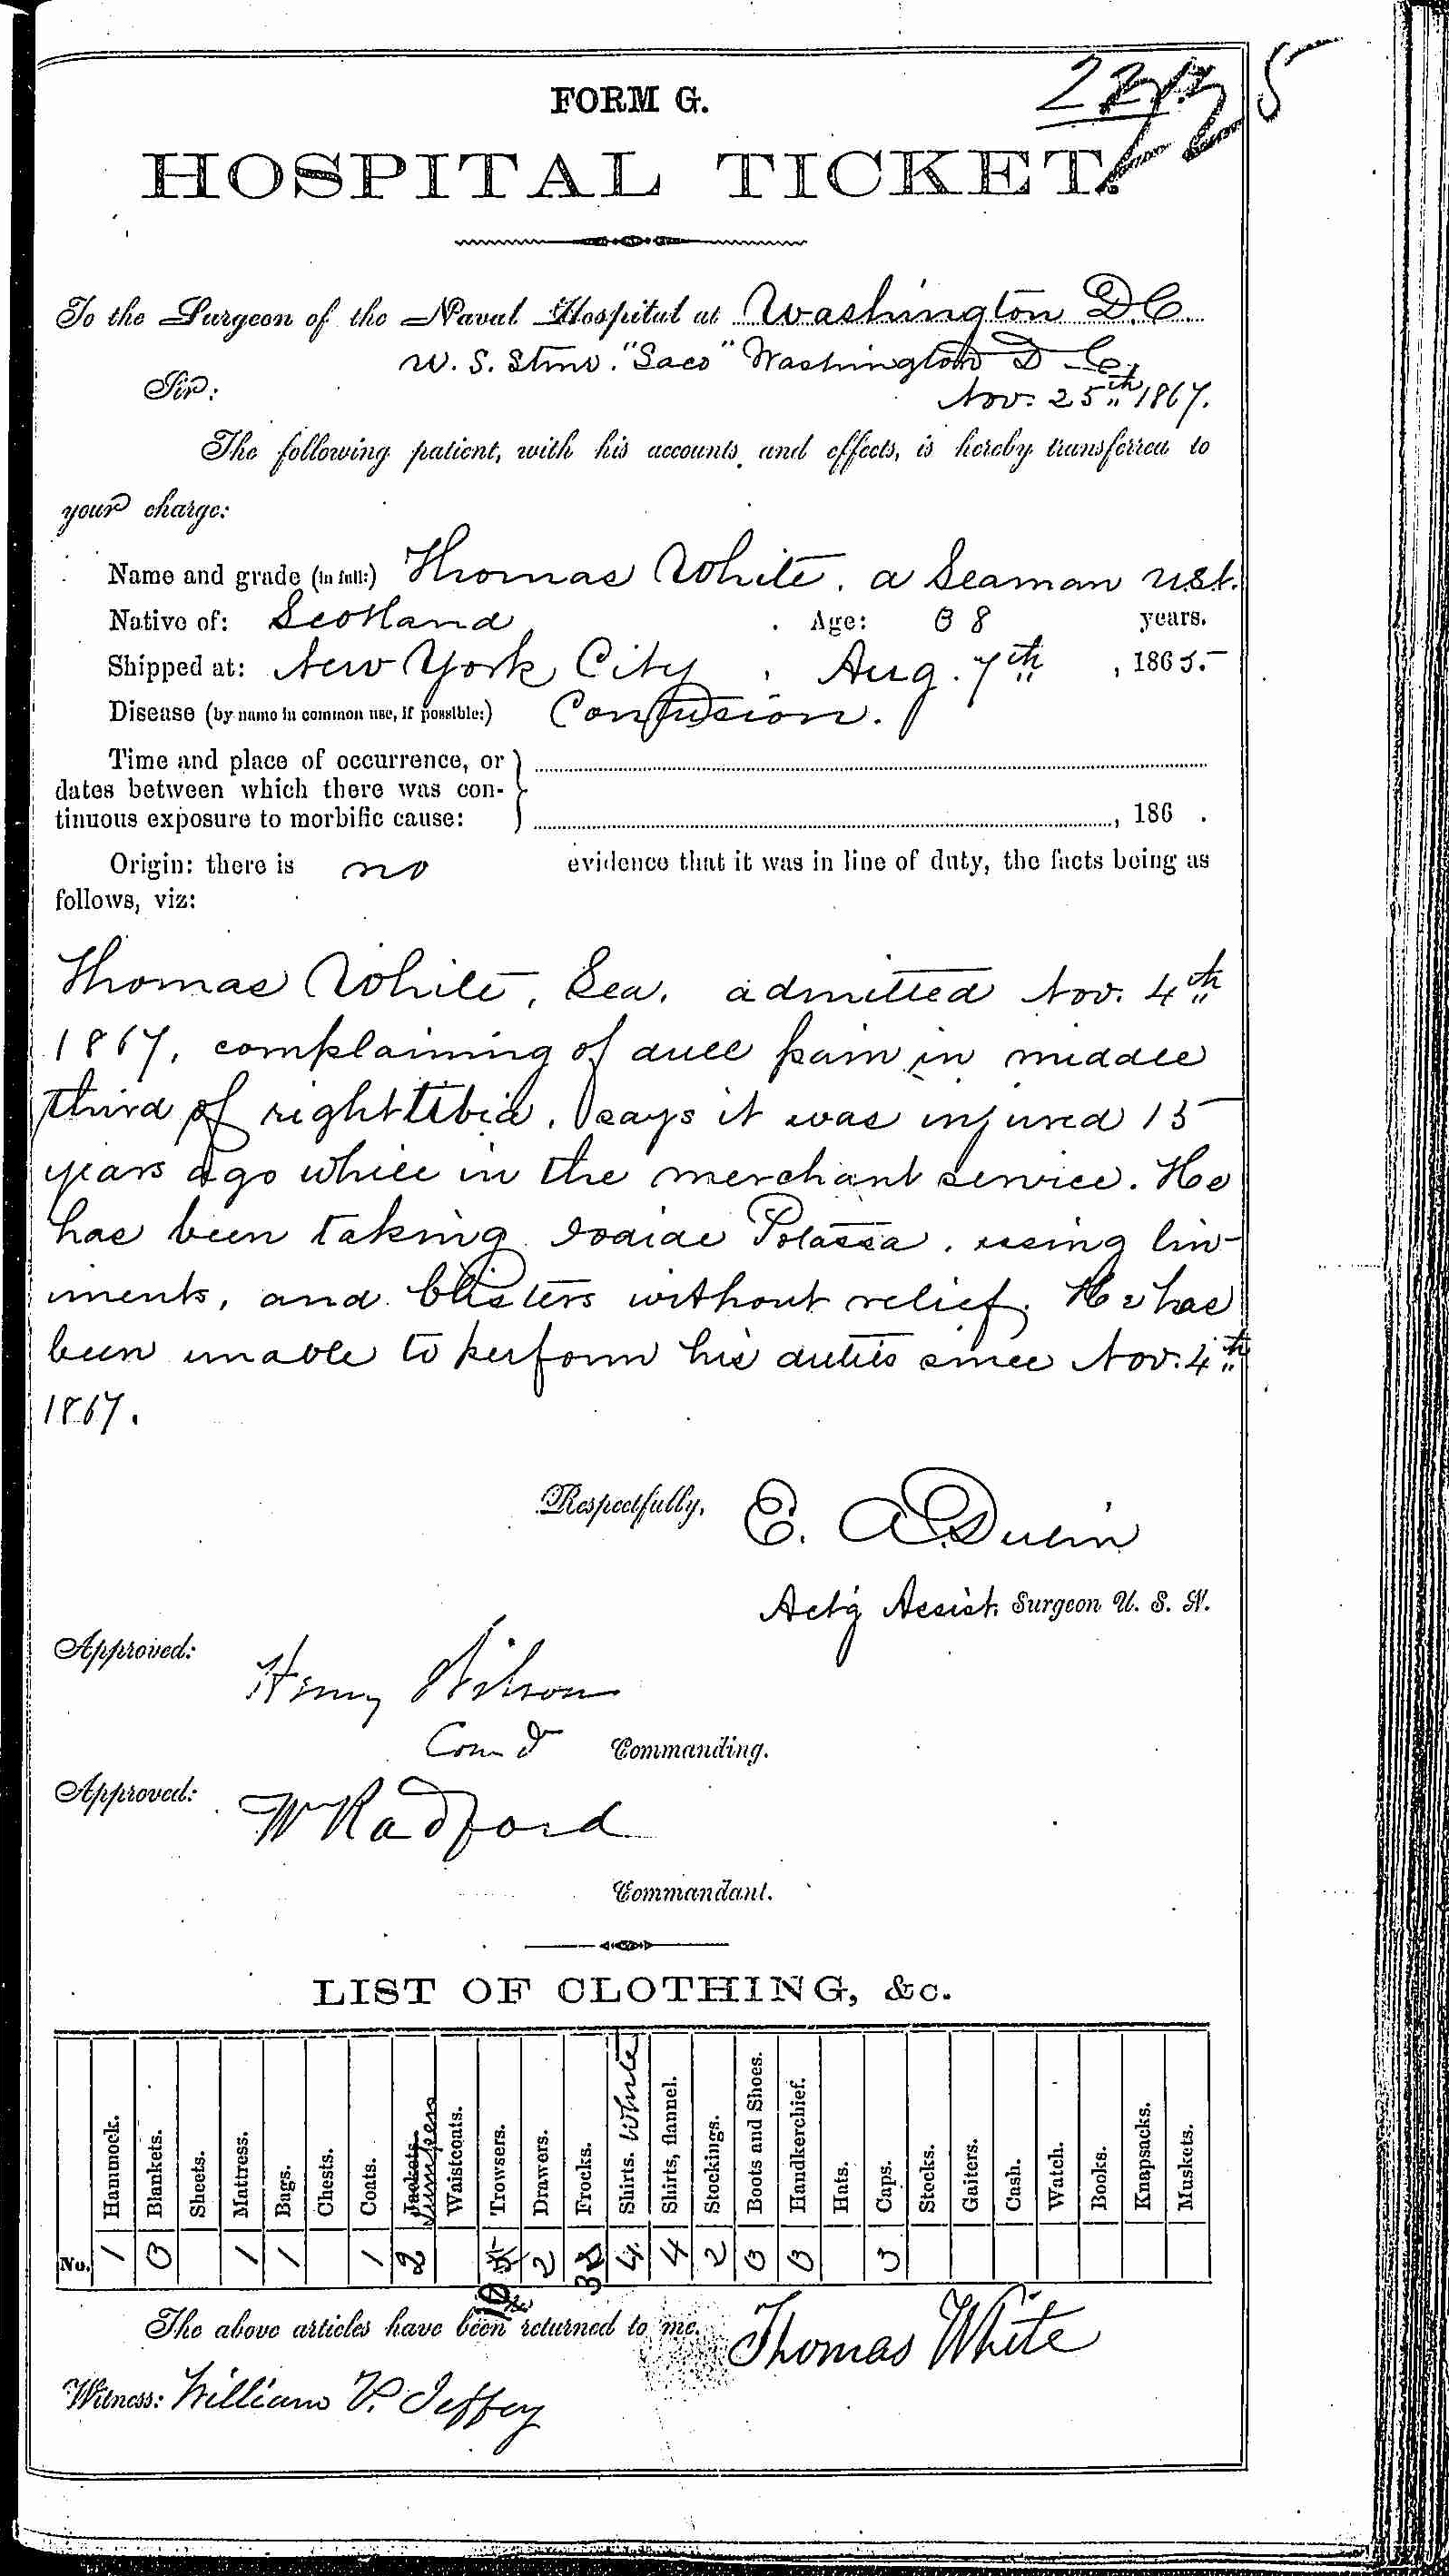 FORM G.
HOSPITAL TICKET.
To the Surgeon of the Naval Hospital at Washington D.C.
U. S. Stmr. "Saco" Washington D. C.,
Sir: Nov. 25th 1867.
The following patient, with his accounts and effects, is hereby transferred to
your charge:
Name and grade (in full:) Thomas White. a Seaman
Native of: Scotland, Age: 38 years.
Shipped at: New York City, Aug. 7th, 1865.
Disease (by name in common use, if possible:) Contusion.
Time and place of occurrence, or
dates between which there was con-
tinuous exposure to morbific cause: , 186 .
Origin: there is no evidence that it was in line of duty, the facts being as
follows, viz:
Thomas White, Sea. admitted Nov. 4th
1867, complaining of dull pain in middle
third of right tibia. says it was injured 15
years ago while in the merchant service. He
has been taking Iodide Potassa, using lin-
iments, and blisters without relief. He has
been unable to perform his duties since Nov. 4th
1867.
Respectfully, E. A. Dulin
Act'g Assist. Surgeon U. S. N.
Approved: Henry Wilson
Comd'r Commanding.
Approved: W Radford
Commandant.
LIST OF CLOTHING, &c.
Hammock. Blankets. Sheets. Mattress. Bags. Chests. Coats. Jackets. Jumpers Waistcoats. Trowsers. Drawers. Frocks. Shirts. White Shirts, flannel. Stockings. Boots and Shoes. Handkerchief. Hats. Caps. Stocks. Gaiters. Cash. Watch. Books. Knapsacks. Muskets.
No. 1 3 1 1 1 2 2 4 4 2 3 3 3
The above articles have been returned to me. Thomas White
Witness: William V. Jeffey